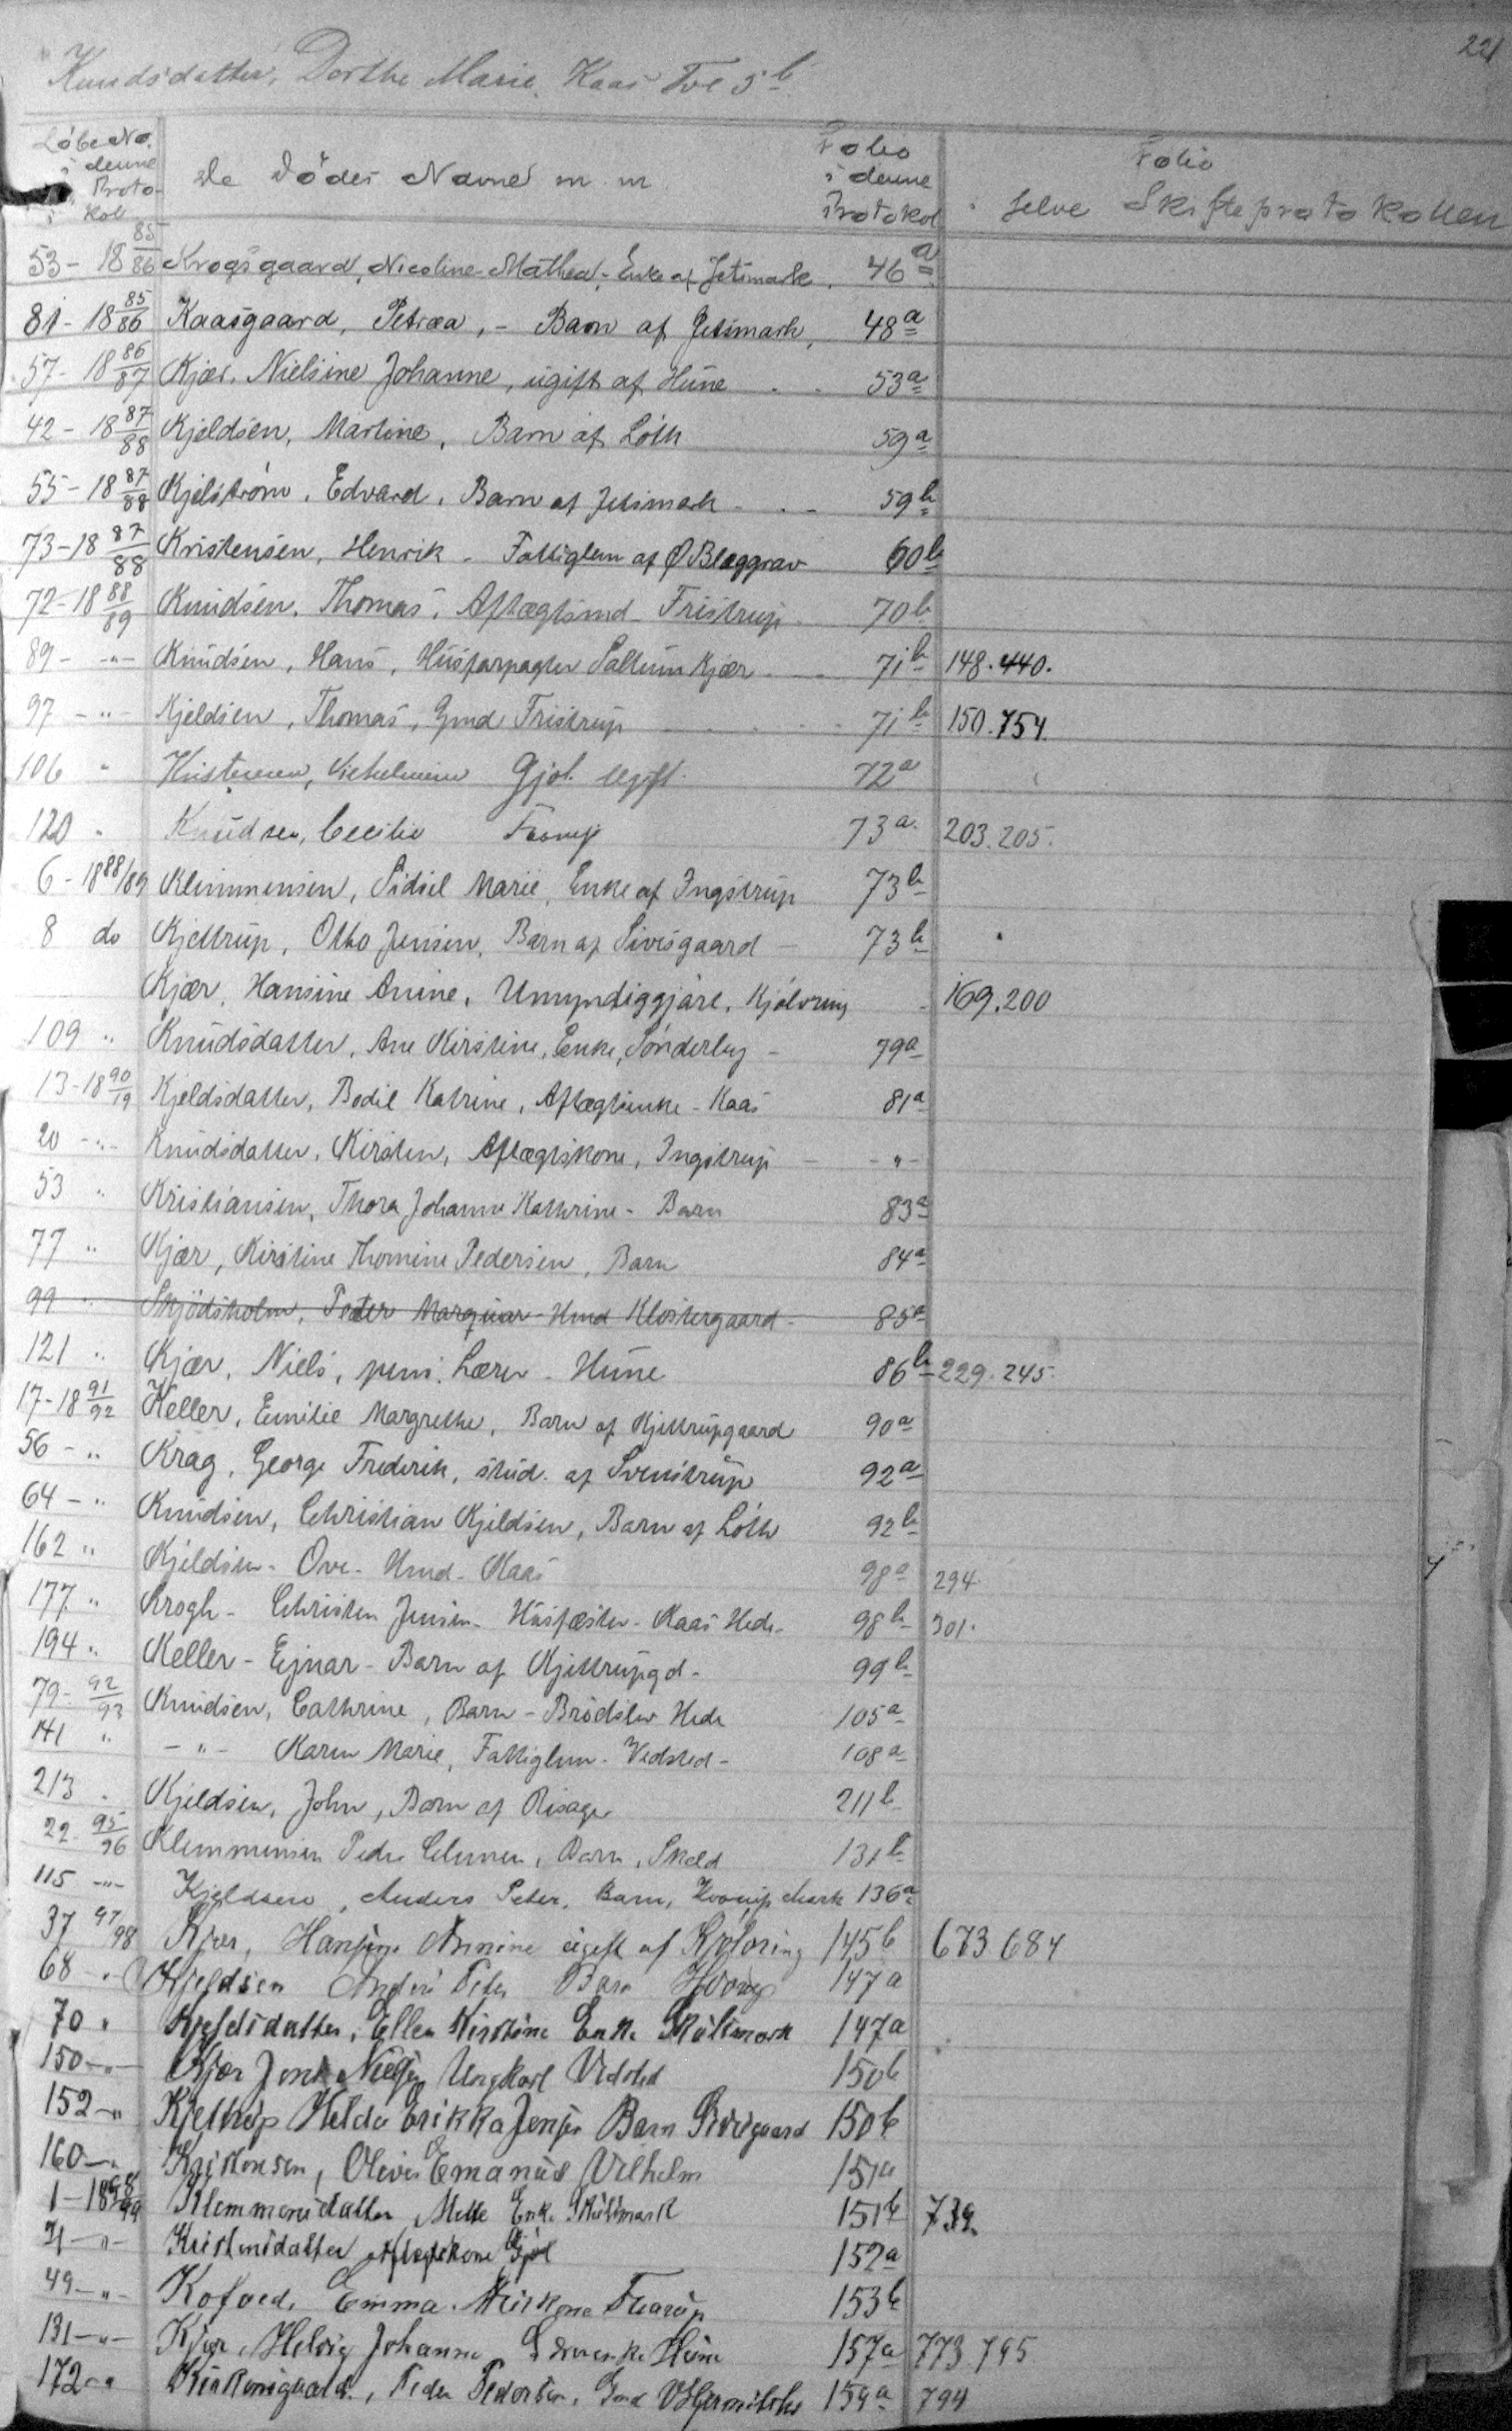 221
Knudsdatter, Dorthe Marie, Kaas Fol 5b
Löbe No. i denne Protokol | De Dödes Navne m. m. | Folio i denne Protokol | Folio i selve Skifteprotokollen
53 - 18 85/86 Krogsgaard, Nicoline Mathea, Enke af Jetsmark. 46a
81 - 18 85/86 Kaasgaard, Petræa, - Barn af Jetsmark, 48a
57 - 18 86/87 Kjær, Nielsine Johanne, ugift af Hune 53a
42 - 18 87/88 Kjeldsen, Martine, Barn af Löth 59a
55 - 18 87/88 Kjelström, Edvard, Barn af Jetsmark - 59b
73 - 18 87/88 Kristensen, Henrik - Fattiglem af Ø Bleggrav 60b
72 - 18 88/89 Knudsen, Thomas, Aftægtsmd Fristrup 70b
89 - " - Knudsen, Hans, Husforpagter Saltum Kjær 71b 148.440.
97 - " - Kjeldsen, Thomas, Gmd Fristrup 71b 150.754.
106 " Kristensen, Gjöl ugift 72a
120 " Knudsen, Cecilie 73a 203.205.
6 - 1888/89 Klemmensen, Sidsel Marie, Enke af Ingstrup 73b
8 do Kjettrup, Otto Jensen, Barn af Sivesgaard - 73b
Kjær, Hansine Anine, Umyndiggjäre, Kjölvring 169.200
109 " Knudsdatter, Ane Kirstine, Enke, Sönderby - 79a
13 - 18 90/19 Kjeldsdatter, Bodil Katrine, Aftægtsenke - Kaas 81a
20 - " - Knudsdatter, Kirsten, Aftægtskone, Ingstrup - - " -
53 " Kristiansen, Thora Johanne Kathrine - Barn 83a
77 " Kjær, Kirstine Thomine Pedersen, Barn 84a
99 " Skjödsholm, Peder Marquar - Hmd Klostergaard - 85a
121 " Kjær, Niels, pens. Lærer - Hune 86b 229.245.
17 - 18 91/92 Keller, Emilie Margrethe, Barn af Kjettrupgaard 90a
56 - " Krag, George Frederik, stud. af Svenstrup 92a
64 - " Knudsen, Christian Kjeldsen, Barn af Löth 92b
162 " Kjeldsen - Ove - Hmd - Kaas 98a 294.
177 " Krogh - Christen Jensen - Husfæster - Kaas Hede - 98b 301.
194 " Keller - Ejnar - Barn af Kjettrupgd - 99b
79 - 92/93 Knudsen, Cathrine, Barn - Brödslev Hede 105a
141 " - " - Karen Marie, Fattiglem - Vedsted - 108a
213 " Kjeldsen, John, Barn af Risager 211b
22 - 95/96 Klemmensen Peder Clemen, Barn, 131b
115 - " - Kjeldsen, Anders Peter, Barn, Mark 136a
37 97/98 Kjær, Hansine Annine ugift af Kjölvring 145b 673 684
68 - " Kjeldsen Anders Peter Barn 147a
70 " Kjeldsdatter, Ellen Kirstine Enke 147a
150 - " - Kjær Jens Nielsen Ungkarl Vedsted 150b
152 - " Kjettrup Helda Erikka Jensen Barn Sivesgaard 150b
160 - " Kristensen, Oliver Emanuel Vilhelm 151a
1 - 18 98/99 Klemmensdatter Mette Enke 151b 739.
21 - " - Kristensdatter Aftægtskone Gjöl 152a
49 - " - Kofoed, Emma 153b
131 - " - Kjær, Helvig Johanne Hune 157a 773.795
172 - " , Peder Pedersen, Gmd 159a 794